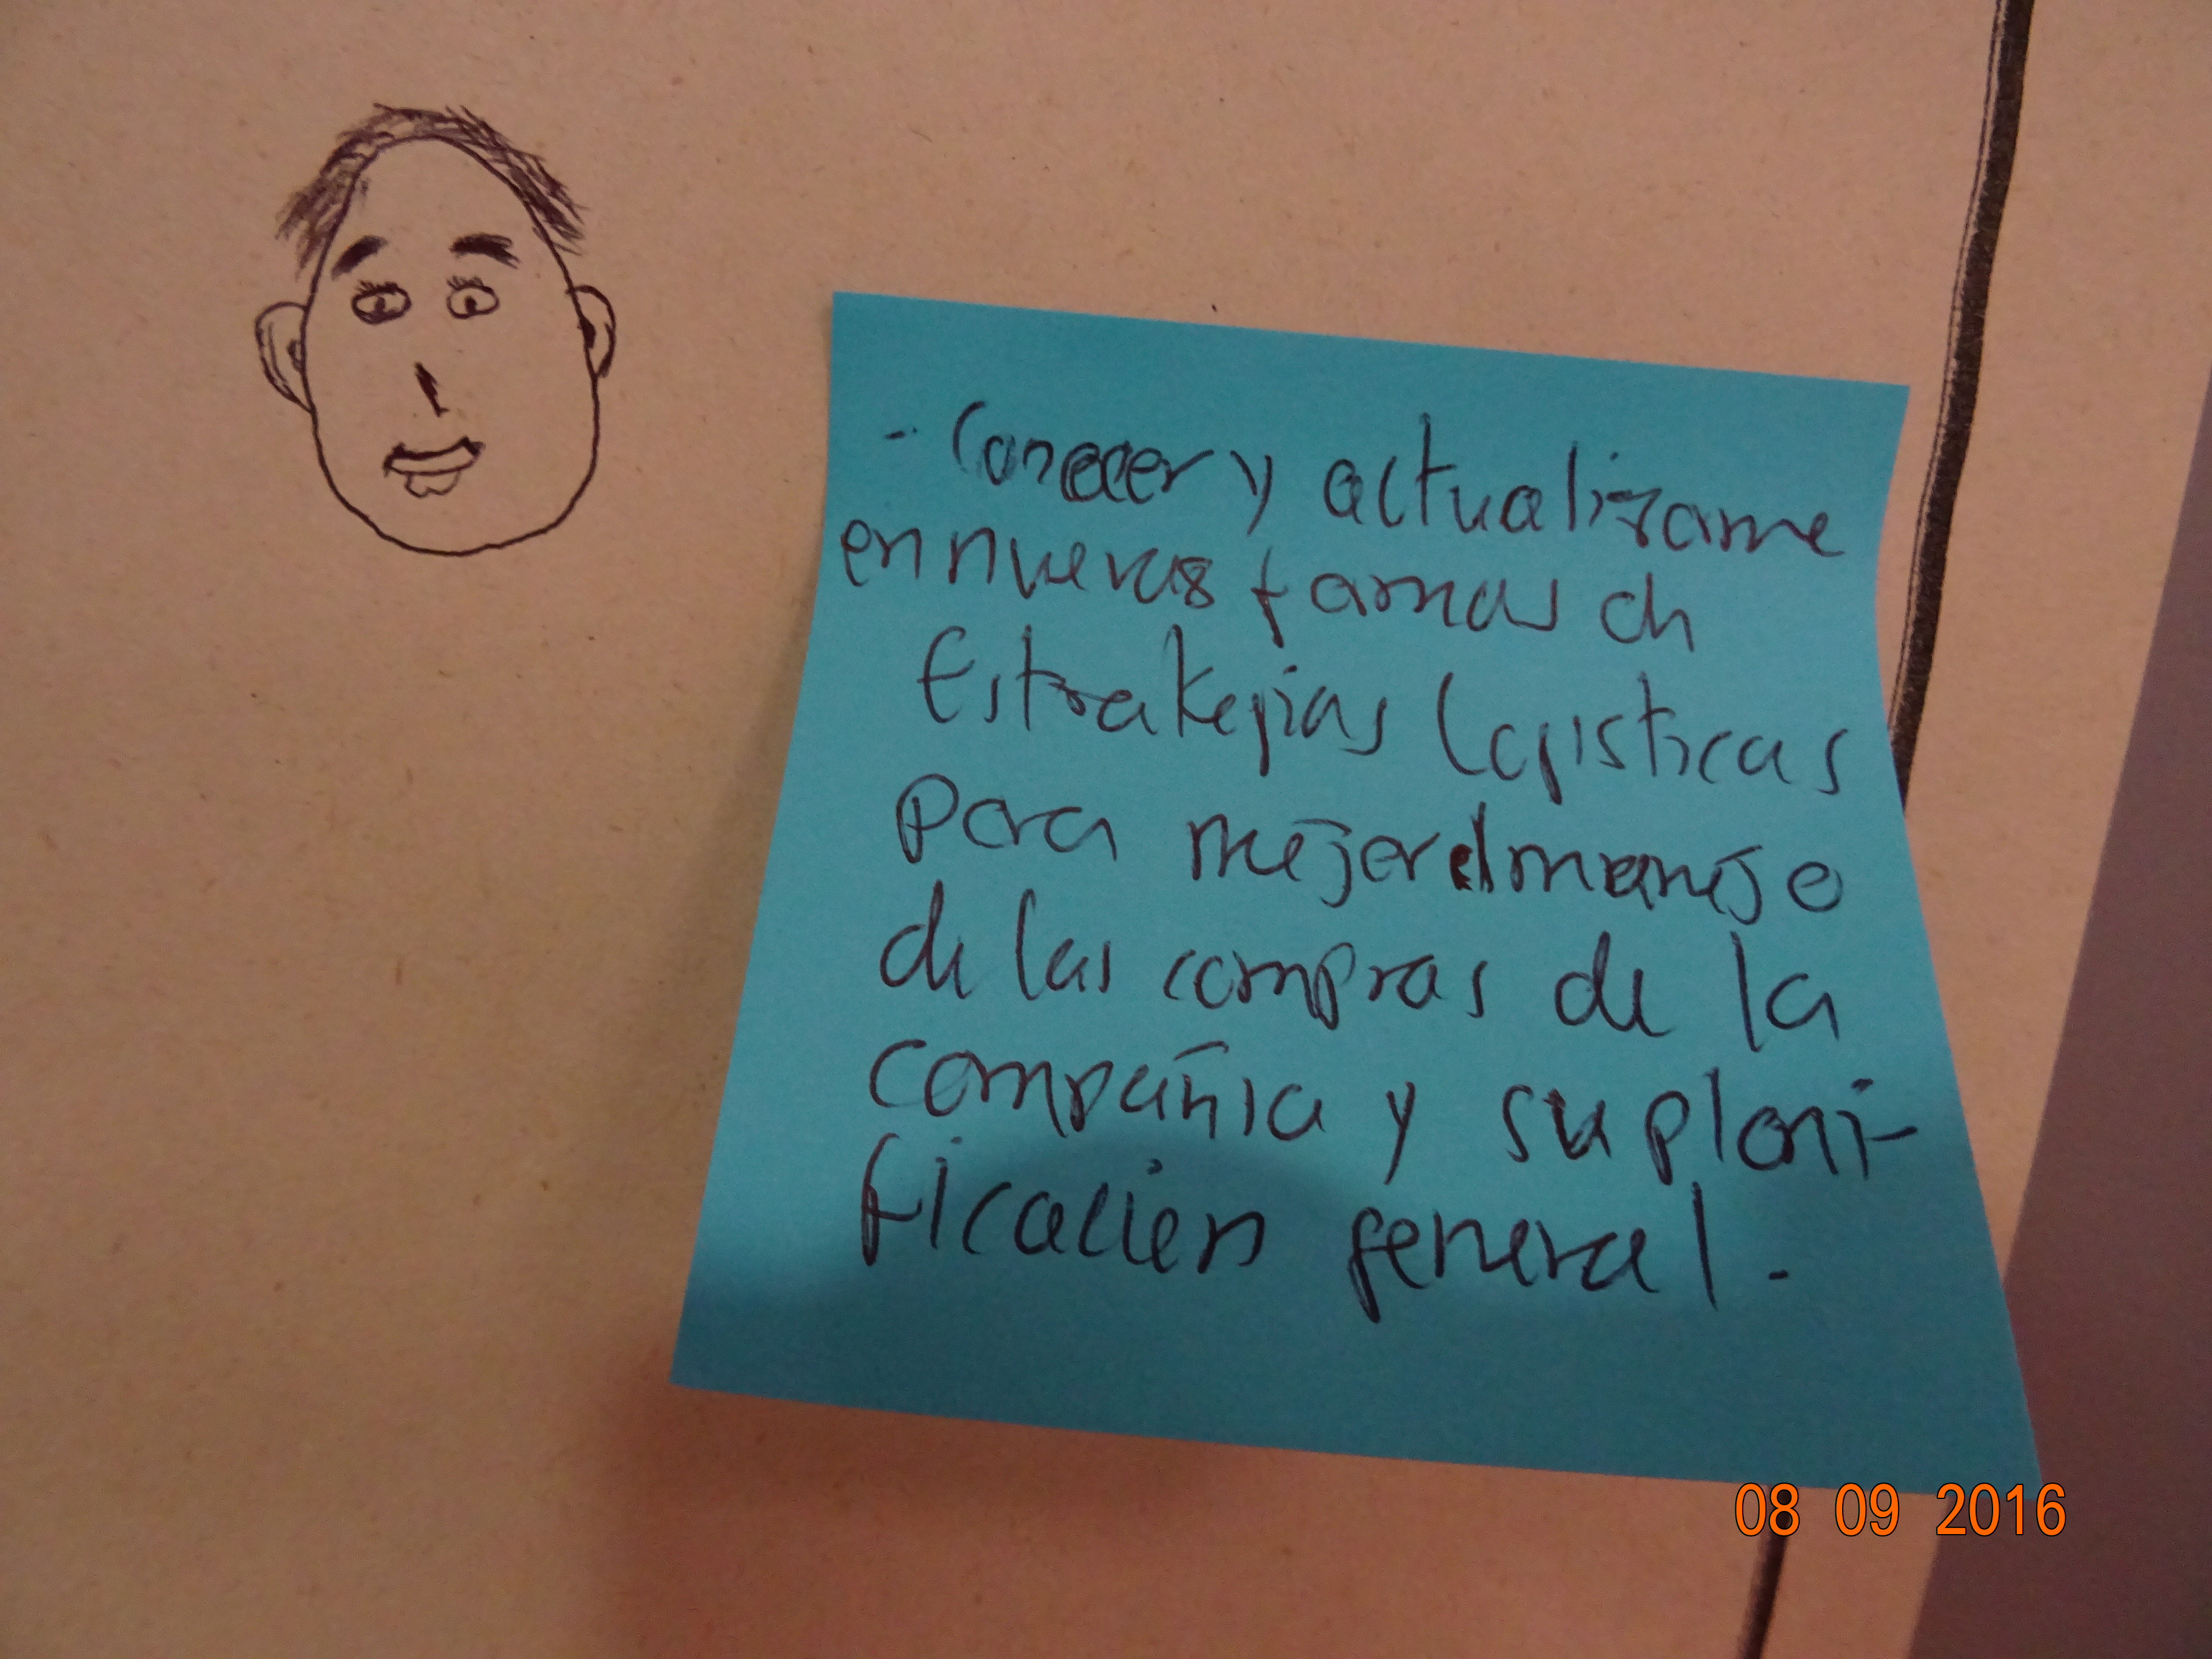 - Conocer y actualizarme
en nuevas formas de
Estrategias Logisticas
para mejor el manejo
de las compras de la
compañia y su plani-
ficación general.-
08 09 2016